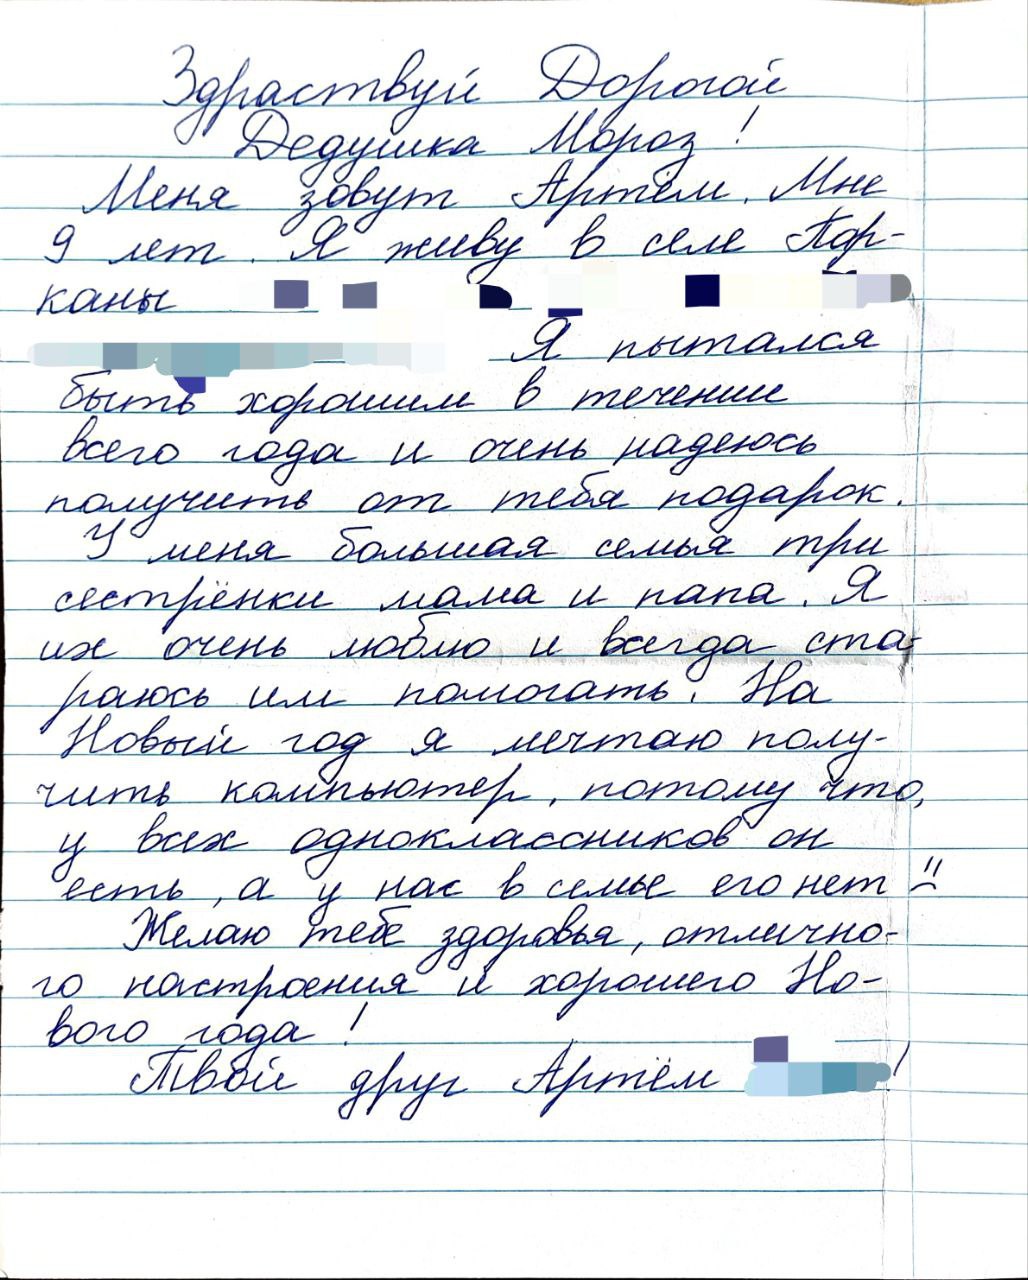 Здраствуй Дорогой
Дедушка Мороз!
Меня зовут Артём. Мне
9 лет. Я живу в селе Пар-
каны
Я пытался
быть хорошим в течении
всего года и очень надеюсь
получить от тебя подарок.
У меня большая семья три
сестрёнки мама и папа. Я
их очень люблю и всегда ста-
раюсь им помогать. На
Новый год я мечтаю полу-
чить компьютер, потому что,
у всех одноклассников он
есть, а у нас в семье его нет
Желаю тебе здоровья, отлично-
го настроения и хорошего Но-
вого года!
Твой друг Артём !